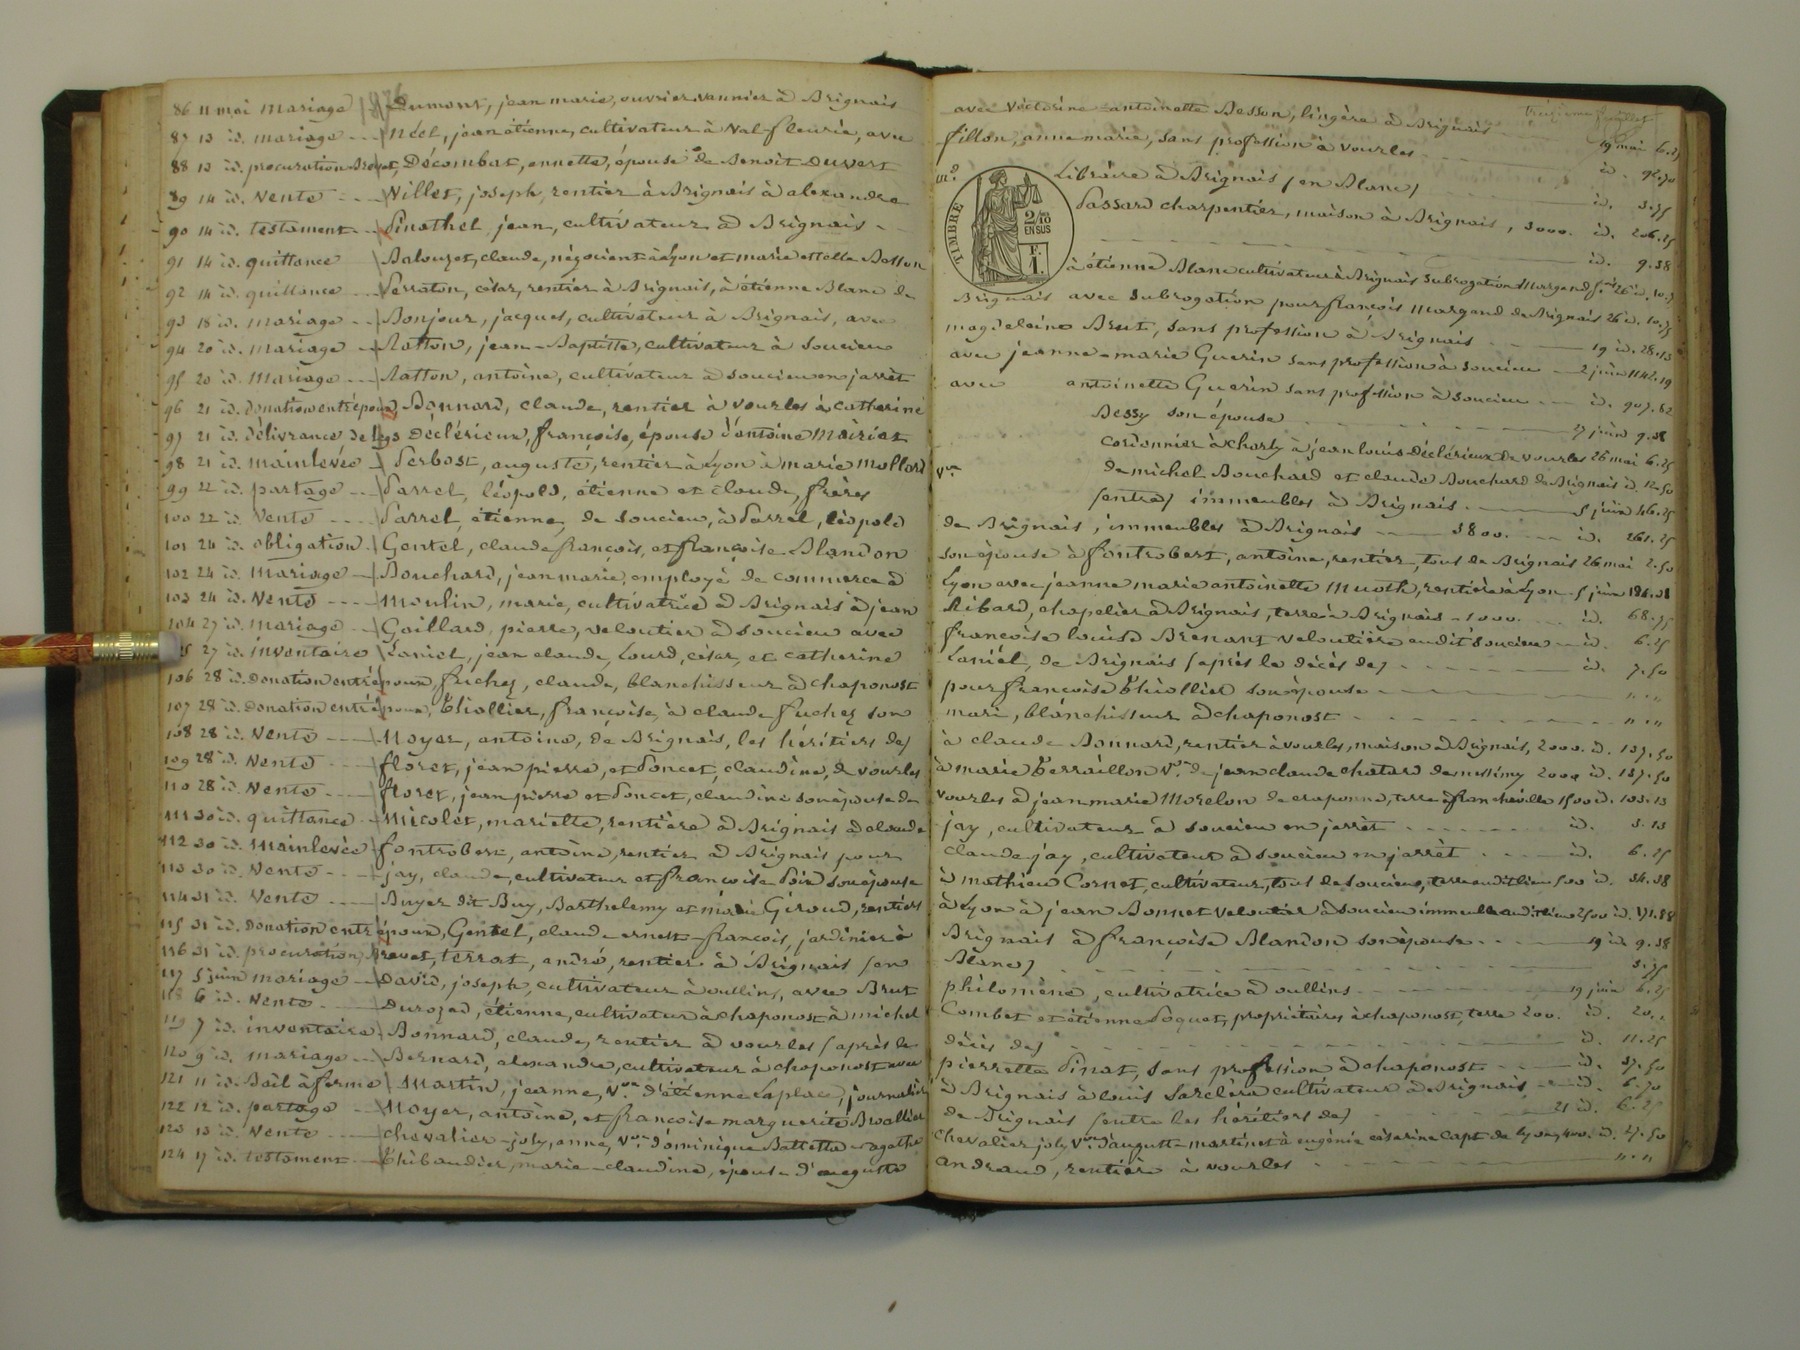 86 11 mai Mariage Dumont, jean marie, ouvrier vannier à Brignais
87 13 id. mariage Néel, jean étienne, cultivateur à Val fleurie, avec
88 13 id. procuration Brevet, Décombat, ennette, épouse de Benoit Duvert
89 14 id. Vente Villet, joseph, rentier à Brignais à alexandre
90 14 id. testament Pinathel, jean, cultivateur à Brignais
91 14 id. quittance claude, négociant à Lyon et marie
92 14 id. quittance Perraton, césar, rentier à Brignais, à étienne Blanc de
93 18 id. Mariage Bonjour, jacques, cultivateur à Brignais, avec
94 20 id. Mariage Ratton, jean-Baptiste, cultivateur à Soucieu
95 20 id. Mariage Ratton, antoine, cultivateur à Soucieu en jarrêt
96 21 id. Donation entre époux Bonnard, claude, rentier à Vourles à Catherine
97 21 id. Délivrance de legs Déclérieux, françoise, épouse d'antoine Mairiat
98 21 id. Mainlevée Perbost, auguste, rentier à Lyon à marie Mollard
99 22 id. partage Parrel, léopold, étienne et claude, frères
100 22 id. Vente Parrel, étienne, de Soucieu, à Parrel, léopold
101 24 id. obligation Gentel, claude françois, et françoise Blandon
102 24 id. Mariage Bouchard, jean marie, employé de commerce à
103 24 id. Vente Moulin, marie, cultivatrice à Brignais à jean
104 27 id. mariage Gaillard, pierre, veloutier à Soucieu avec
27 id. inventaire Laniel, jean claude, Lourd, césar, et catherine
106 28 id. Donation entre époux, fuchez, claude, blanchisseur à Chaponost
107 28 id. Donation entre époux, Thiollier, françoise, à claude fuchez son
108 28 id. Vente Noyer, antoine, de Brignais, les héritiers de)
109 28 id. Vente floret, jean pierre, et Poncet, claudine, de vourles
110 28 id. Vente floret, jean pierre et Poncet, claudine son épouse de
111 30 id. quittance Nicolet, mariette, rentière à Brignais à claude
112 30 id. Mainlevée fontrobert, antoine, rentier à Brignais pour
113 30 id. Vente jay, claude, cultivateur et françoise son épouse
114 31 id. Vente Buyer dit Buy, Barthelemy et marie Giroud, rentiers
115 31 id. Donation entre époux, Gentel, claude ernest-françois, jardinier à
116 31 id. procuration Brevet, terrat, andré, rentier à Brignais (en
117 5 juin mariage David, joseph, cultivateur à oullins, avec Brut
118 6 id. Vente Durozad, étienne, cultivateur à chaponost à michel
119 7 id. inventaire Bonnard, claude, rentier à vourles (après le
120 9 id. mariage Bernard, alexandre, cultivateur à chaponost avec
121 11 id. Bail à ferme Martin, jeanne, Vve d'étienne Laplace, journalière
122 12 id. partage Noyer, antoine, et françoise marguerite Broallier
123 13 id. Vente chevalier-joly, anne, Vve dominique Battetta agathe
124 17 id. testament Thibaudier, marie-claudine, épouse d'auguste
treizième feuillet
avec Victorine antoinette Besson, lingère à Brignais 19 mai 6.25
fillon, anne marie, sans profession à Vourles id. 92.70
Libraire à Brignais (en Blanc) id. 3.75
Passard charpentier, maison à Brignais, 3000. id. 206.25
id. 9.38
TIMBRE
2/10 EN SUS
F. 1.
à étienne Blanc cultivateur à Brignais subrogation Margand
Brignais avec Subrogation pour françois Margand de Brignais 26 id.
magdeleine Brut, sans profession à Brignais 19 id. 28.13
avec jeanne-marie Guerin sans profession à Soucieu 2 juin 1142.19
avec antoinette Guerin sans profession à Soucieu id. 907.82
Bessy son épouse 27 juin 9.38
cordonnier à charly à jean louis Déclérieux de vourles 26 mai 6.25
Vve de michel Bouchard et claude Bouchard de Brignais id. 12.50
(entre) immeubles à Brignais 5 juin 46.25
de Brignais, immeubles à Brignais 3800. id. 261.25
son épouse à fontrobert, antoine, rentier, tous de Brignais 26 mai 2.50
Lyon avec jeanne marie antoinette Muoth, rentière à Lyon 5 juin
Ribard, chapelier à Brignais, terre à Brignais 1000. id. 68.75
françoise louise Brenant veloutière audit Soucieu id. 6.25
Laniel, de Brignais (après le décès de) id. 7.50
pour françoise Thiollier son épouse " "
mari, blanchisseur à chaponost " "
à claude Bonnard, rentier à vourles, maison à Brignais, 2000. id. 137.50
à marie Terraillon Vve de jean claude chatard de messimy 2000 id. 137.50
vourles à jean marie Morelon de craponne, terre à francheville 1500 id. 103.13
jay, cultivateur à Soucieu en jarrêt id. 3.13
claude jay, cultivateur à Soucieu en jarrêt id. 6.25
à mathieu Cornet, cultivateur, tous de Soucieu, terre audit lieu 500 id. 34.38
à Lyon à jean Bonnet veloutier à Soucieu immeuble audit lieu 2500 id. 171.88
Brignais à françoise Blandon son épouse 19 id. 9.38
Blanc) 3.75
philomène, cultivatrice à oullins 19 juin 6.25
Combet et étienne Poquet, propriétaires à chaponost, terre 200. id. 20.
décès de) id. 11.25
pierrette Pinat, sans profession à chaponost id. 37.50
à Brignais à louis Sarclère cultivateur à Brignais id. 6.70
de Brignais (entre les héritiers de) 21 id. 6.25
Chevalier joly Vve d'auguste martinet à eugénie césarine Capt de lyon, 400. id. 27.50
andraud, rentier à vourles " "